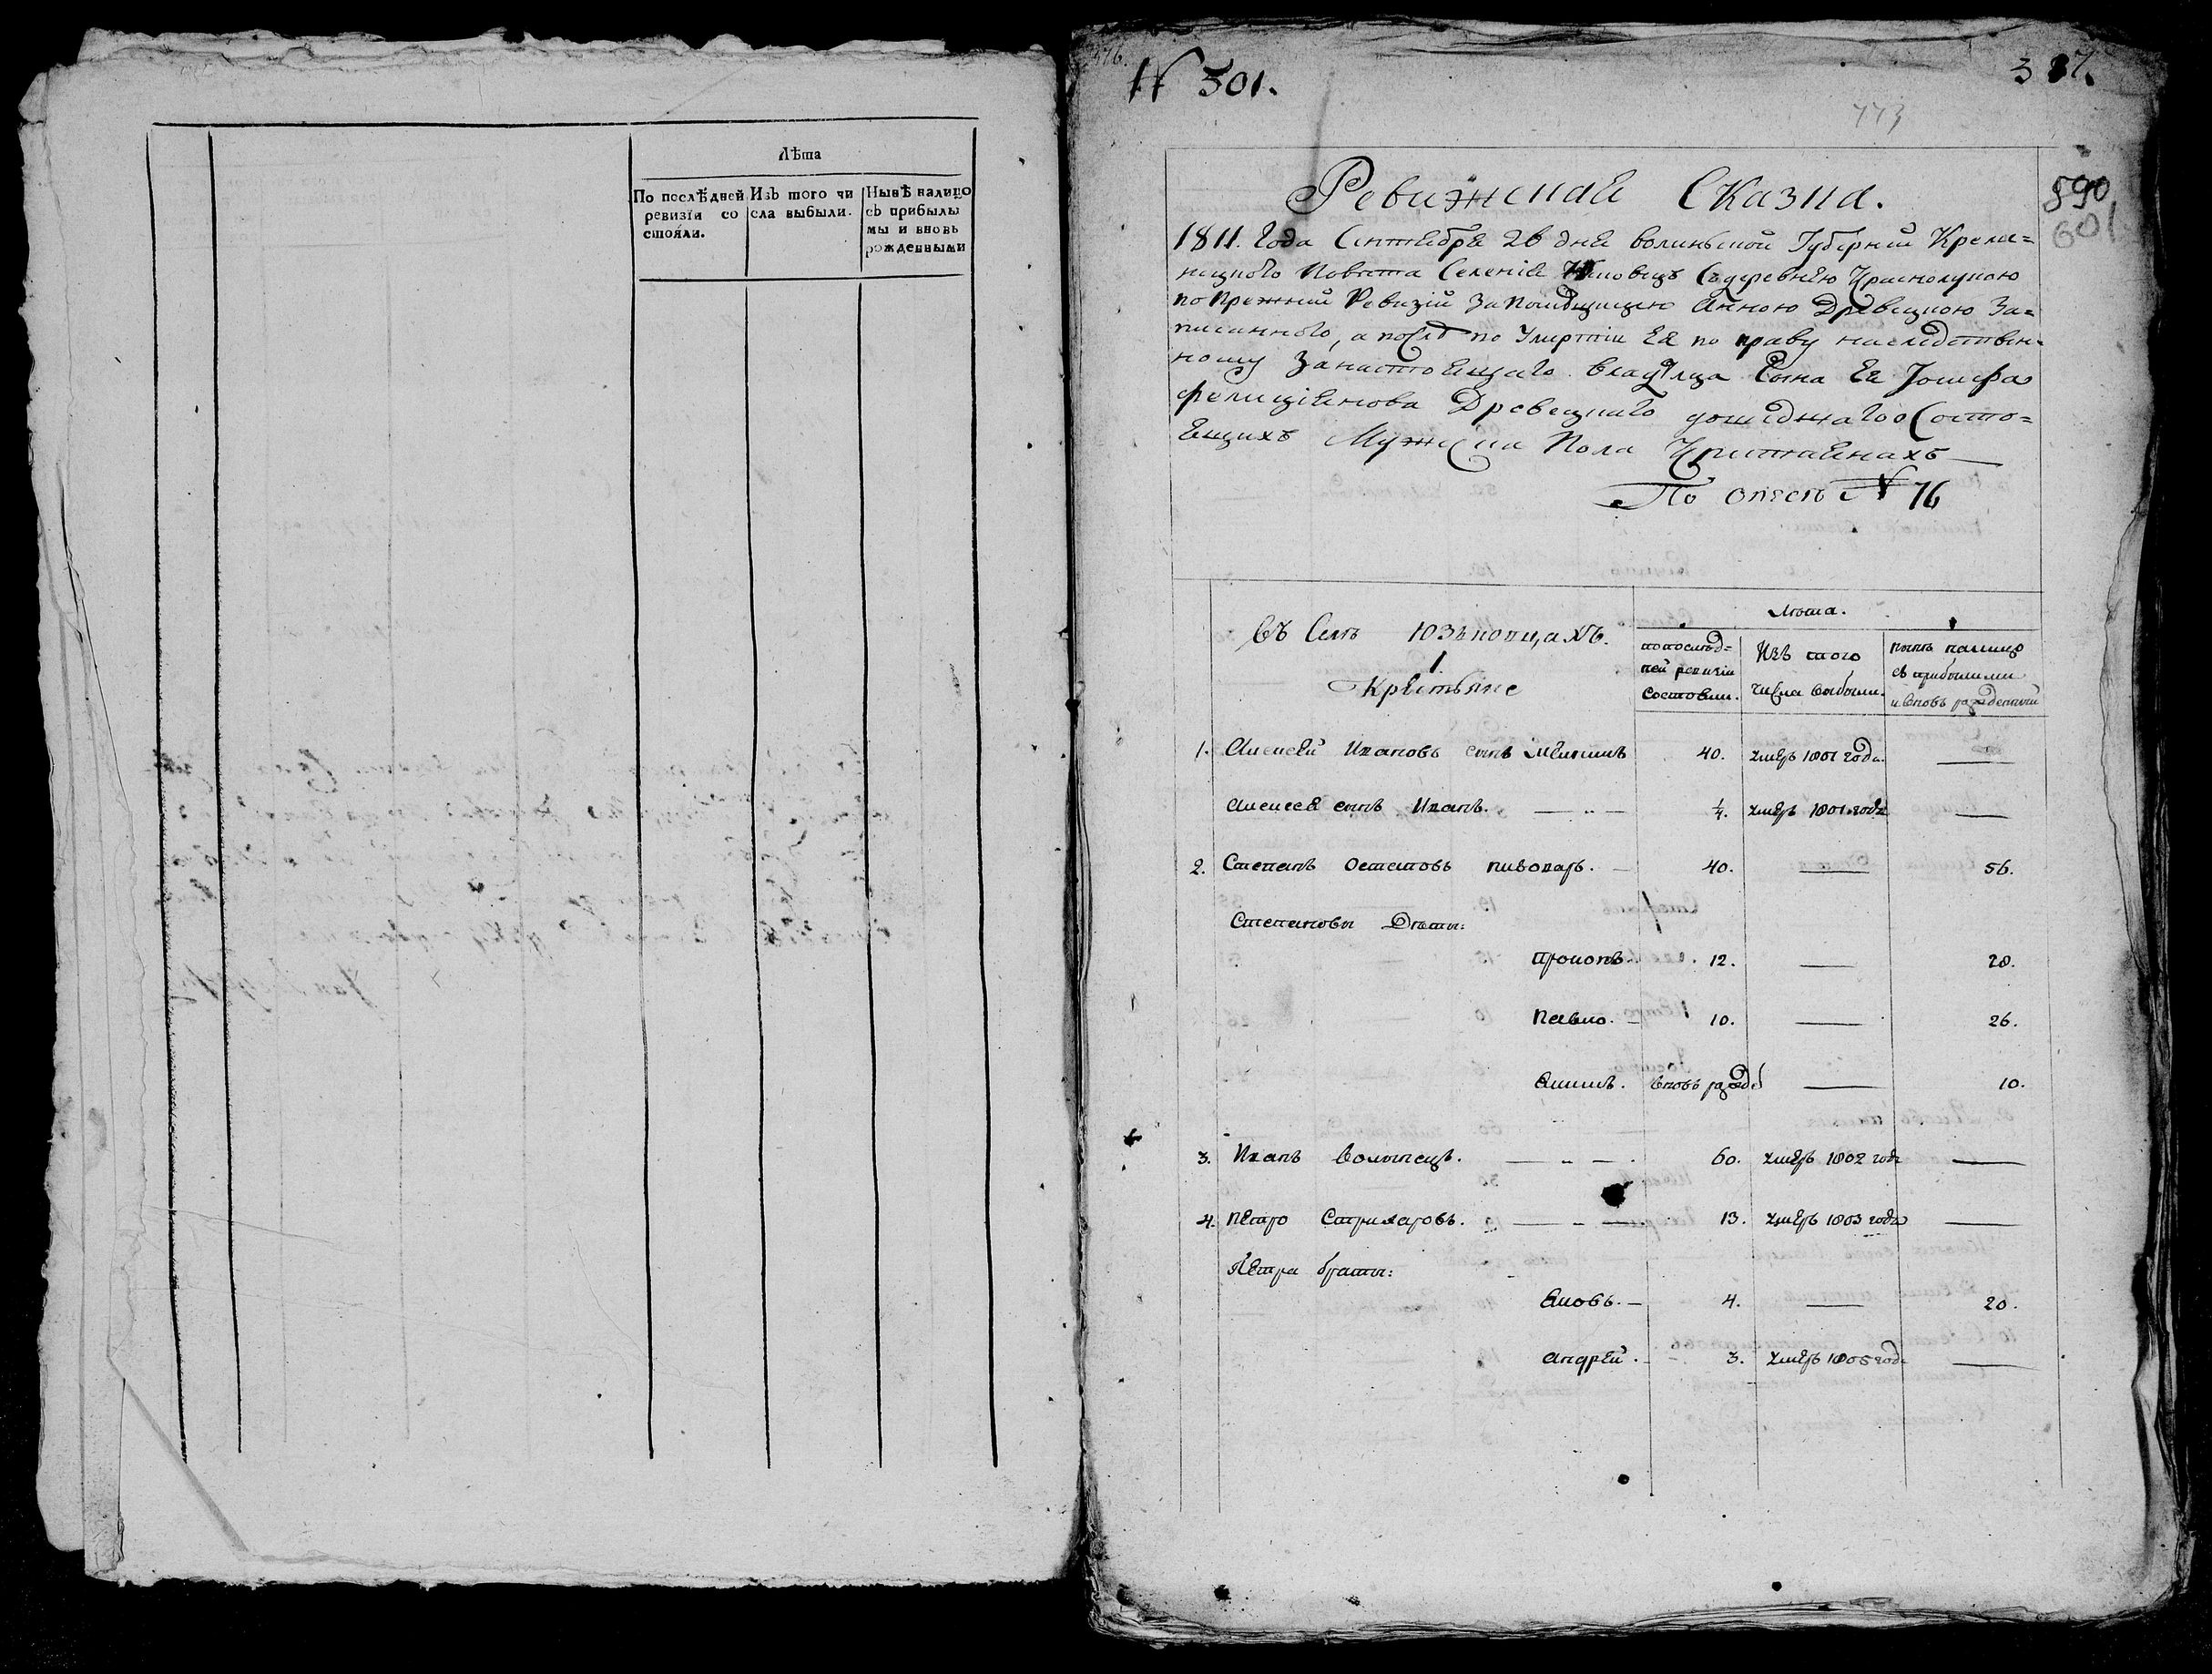 Лѣта
По послѣдней ревизїи со стояли.
Изъ того чи сла выбыли.
Нынѣ налицо съ прибылы ми и вновь рожденными
576.
N 301.
387.
773
590
601
Ревижская Сказка.
1811. Года Сентября 26 дня волынской Губернии Креме=
нецкого Повѣта Селения Юзковецъ Съ деревнею Краснолукою
по Прежний Ревизии За Помещицею Анною Древецкою За=
писанного, а послѣ по Умертти Ея по праву наследствен=
ному За настоящаго владѣлца Сына Ея Иосифа
Фелициянова Древецкаго дошедшаго о Состо=
ящихъ Мужеска Пола Християнахъ
По описѣ N 76
въ Селѣ Юзькопцахъ.
1.
Крестьяне
Лѣта.
по послѣд=
ней ревизіи
состояли.
Изъ того
числа выбыли.
нынѣ налицо
съ прибылими
и вновь рожденними
1. Алексей Ивановъ сынъ 40. умеръ 1801 года. —
Алексея сынъ Иванъ. — 1/4. умеръ 1801 года —
2. Степанъ Остаповъ пивоваръ. — 40. — 56.
Степановы Дѣти:
Прокопъ 12. — 28.
Павло. — 10. — 26.
Якимъ. вновь рожде — 10.
3. Иванъ Волынецъ. — 60. умеръ 1802 года —
4. Петро Стрихаровъ. — 13. умеръ 1803 года —
Петра браты:
Яковъ. — 4. — 20.
Андрей. — 3. умеръ 1805 года —